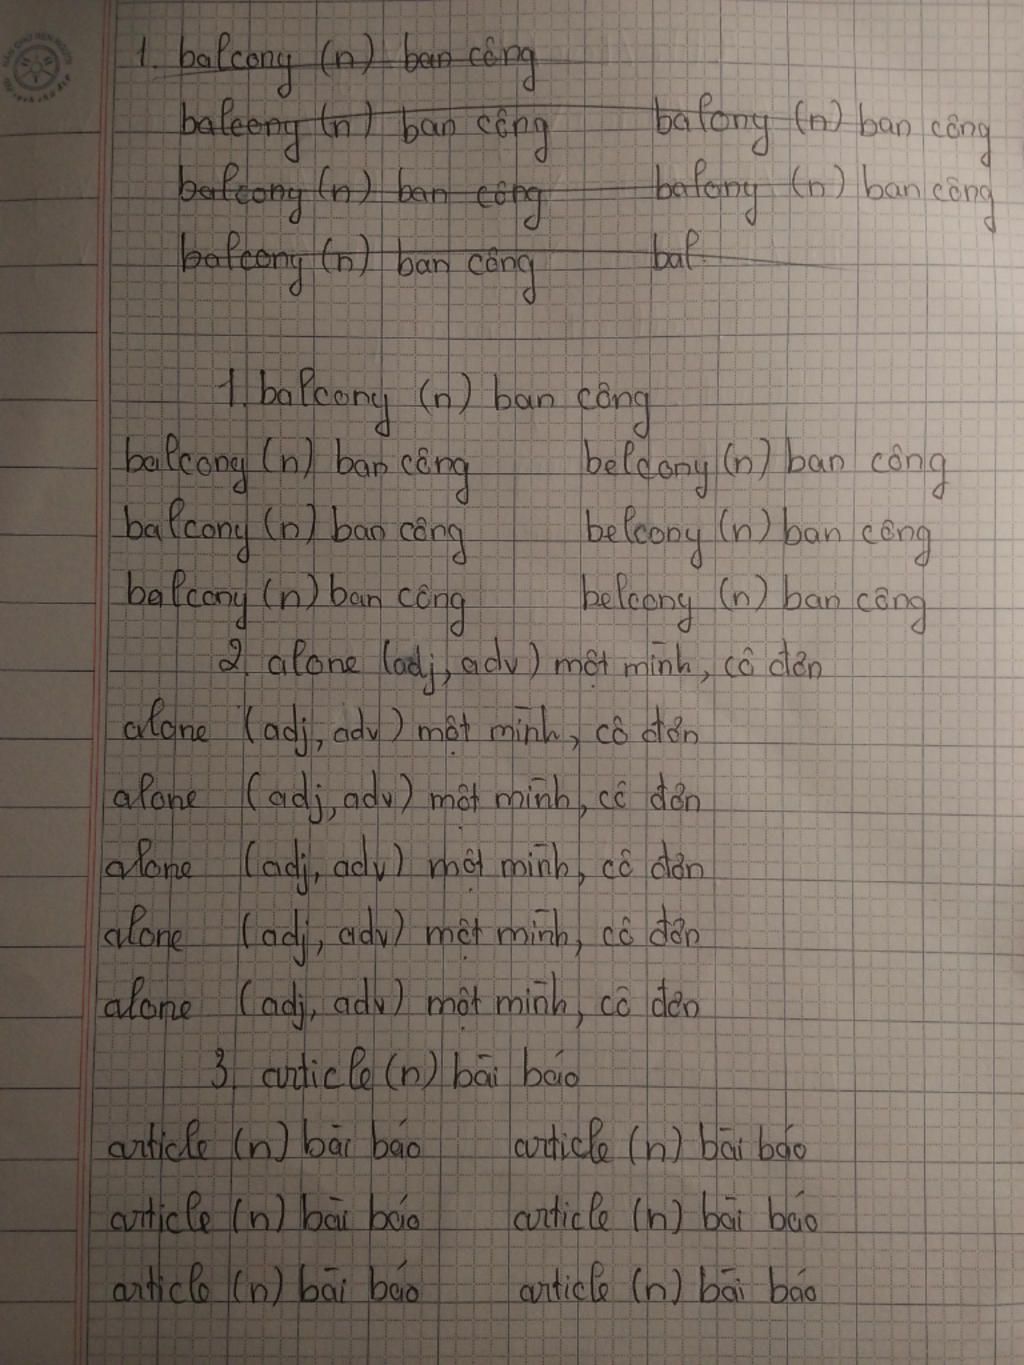 1. balcony (n) ban công
balcony (n) ban công balony (n) ban công
balcony (n) ban công balony (n) ban công
balcony (n) ban công bal
1. balcony (n) ban công
balcony (n) ban công belcony (n) ban công
balcony (n) ban công belcony (n) ban công
balcony (n) ban công belcony (n) ban công
2. alone (adj, adv) một mình, cô đơn
alone (adj, adv) một mình, cô đơn
alone (adj, adv) một mình, cô đơn
alone (adj, adv) một mình, cô đơn
alone (adj, adv) một mình, cô đơn
alone (adj, adv) một mình, cô đơn
3. article (n) bài báo
article (n) bài báo article (n) bài báo
article (n) bài báo article (n) bài báo
article (n) bài báo article (n) bài báo